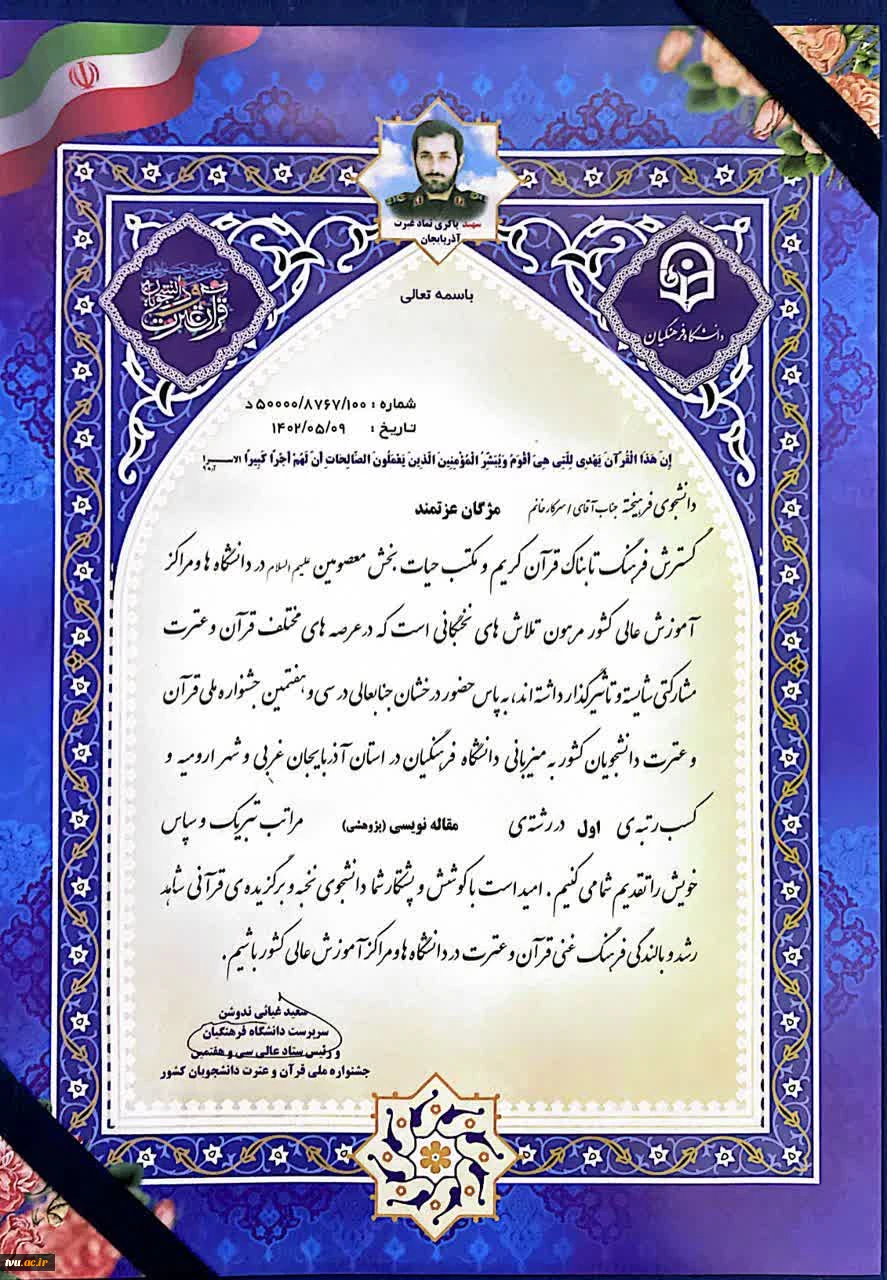 شهید باکری نماد غیرت
آذربایجان
دانشگاه فرهنگیان
قرآن و عترت
باسمه تعالی
شماره : ۵۰۰۰۰/۸۷۶۷/۱۰۰ د
تاریخ : ۱۴۰۲/۰۵/۰۹
إِنَّ هَذَا الْقُرْآنَ یَهْدِی لِلَّتِی هِیَ أَقْوَمُ وَیُبَشِّرُ الْمُؤْمِنِینَ الَّذِینَ یَعْمَلُونَ الصَّالِحَاتِ أَنَّ لَهُمْ أَجْرًا کَبِیرًا الاسراء
دانشجوی فرهیخته جناب آقای / سرکار خانم مژگان عزتمند
گسترش فرهنگ تابناک قرآن کریم و مکتب حیات بخش معصومین علیهم السلام در دانشگاه ها و مراکز
آموزش عالی کشور مرهون تلاش های نخبگانی است که در عرصه های مختلف قرآن و عترت
مشارکتی شایسته و تأثیرگذار داشته اند، به پاس حضور درخشان جنابعالی در سی و هفتمین جشنواره ملی قرآن
و عترت دانشجویان کشور به میزبانی دانشگاه فرهنگیان در استان آذربایجان غربی و شهر ارومیه و
کسب رتبه ی اول در رشته ی مقاله نویسی (پژوهشی) مراتب تبریک و سپاس
خویش را تقدیم شما می کنیم . امید است با کوشش و پشتکار شما دانشجوی نخبه و برگزیده ی قرآنی شاهد
رشد و بالندگی فرهنگ غنی قرآن و عترت در دانشگاه ها و مراکز آموزش عالی کشور باشیم .
سعید غیاثی ندوشن
سرپرست دانشگاه فرهنگیان
و رئیس ستاد عالی سی و هفتمین
جشنواره ملی قرآن و عترت دانشجویان کشور
tvu.ac.ir